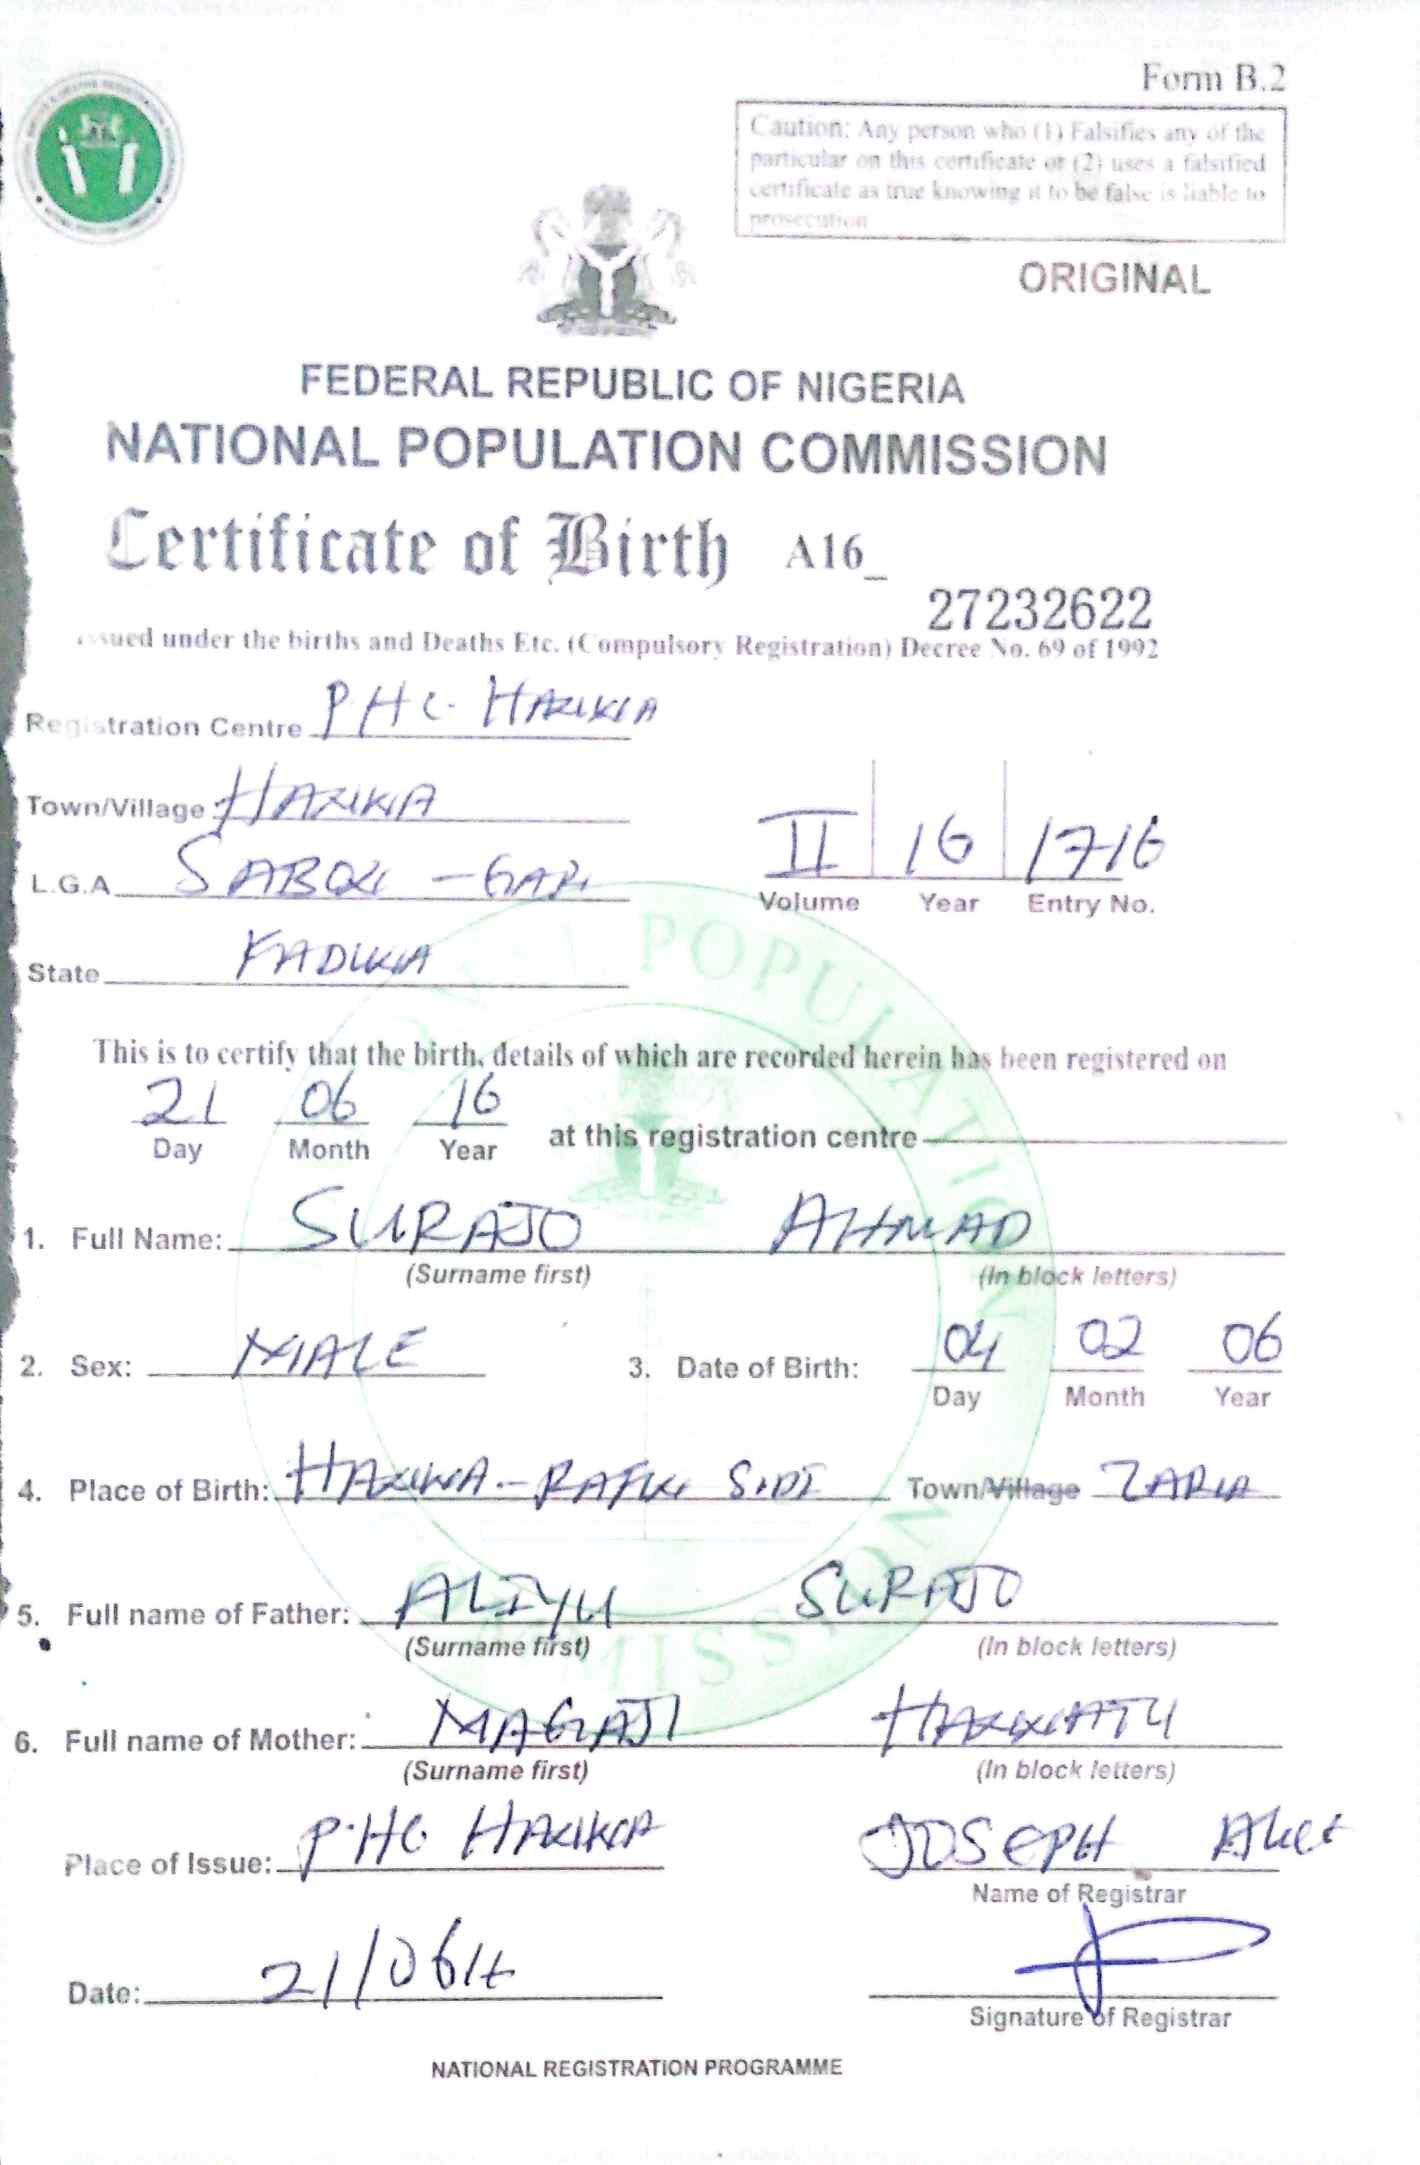 Form B.2
Caution: Any person who (1) Falsifies any of the
particular on this certificate or (2) uses a falsified
certificate as true knowing it to be false is liable to
prosecution
ORIGINAL
FEDERAL REPUBLIC OF NIGERIA
NATIONAL POPULATION COMMISSION
Certificate of Birth A16_
27232622
issued under the births and Deaths Etc. (Compulsory Registration) Decree No. 69 of 1992
Registration Centre PHC HANWA
Town/Village: HANWA
L.G.A SABON-GARI
II 16 1716
Volume Year Entry No.
State KADUNA
This is to certify that the birth, details of which are recorded herein has been registered on
21 06 16
Day Month Year at this registration centre
1. Full Name: SURAJO AHMAD
(Surname first) (In block letters)
2. Sex: MALE 3. Date of Birth: 04 02 06
Day Month Year
4. Place of Birth: HANWA - RAFIN SIDI Town/Village ZARIA
5. Full name of Father: ALIYU SURAJO
(Surname first) (In block letters)
6. Full name of Mother: MAGAJI
(Surname first) (In block letters)
Place of Issue: PHC HANWA JOSEPH
Name of Registrar
Date: 21/06
Signature of Registrar
NATIONAL REGISTRATION PROGRAMME
NATIONAL POPULATION COMMISSION